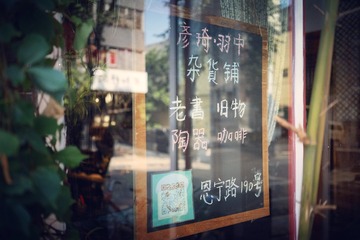 彦琦·羽中
杂貨铺
老書 旧物
陶器 咖啡
恩宁路190号